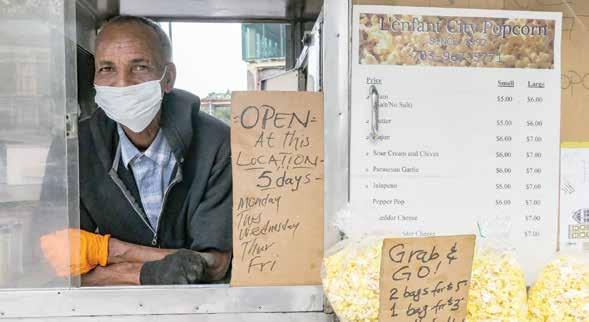 =OPEN=
At this
LOCATION-
5 days-
Monday
Tues
Wednesday
Thur
Fri
L'enfant City Popcorn
Price
Small Large
Plain
Salt(No Salt)
$5.00 $6.00
Butter
$5.00 $6.00
Cajun
$6.00 $7.00
Sour Cream and Chives
$6.00 $7.00
Parmesan Garlic
$6.00 $7.00
Jalapeno
$5.00 $7.00
Pepper Pop
$6.00 $7.00
Cheddar Cheese
$7.00
Cheese
$7.00
Grab &
GO!
2 bags for $5.
1 bag for $3.